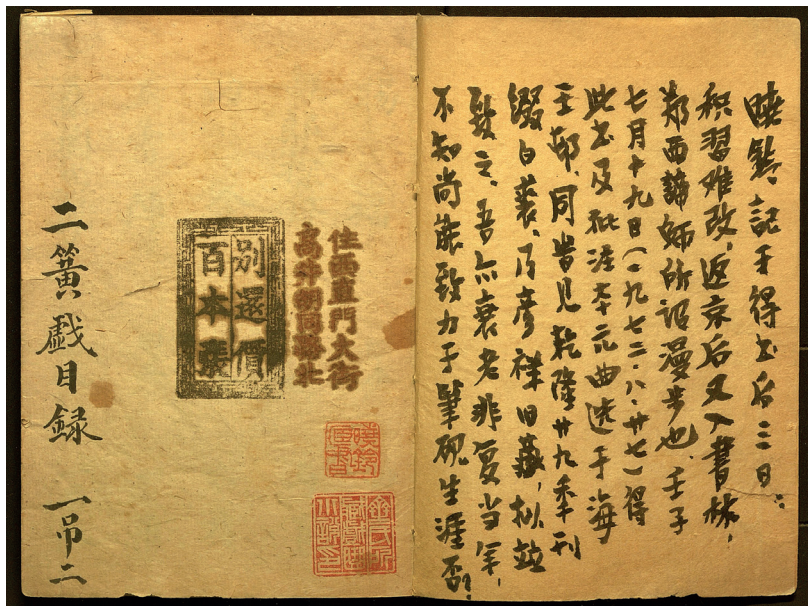 曉鈴記于得书后三日：
积習难改，返京后又入書林，
郑西諦師所谓漫步也。壬子
七月十九日（一九七二·八·廿七）得
此书及批注本元曲选于海
王邨，同旹见乾隆廿九年刊
缀白裘，乃彦祥旧藏，拟竝
致之，吾亦衰老非复当年，
不知尚能致力于筆硯生涯否？
住西直門大街
高井胡同路北
別還價
百本張
曉鈴
二簧戲目録 一吊二